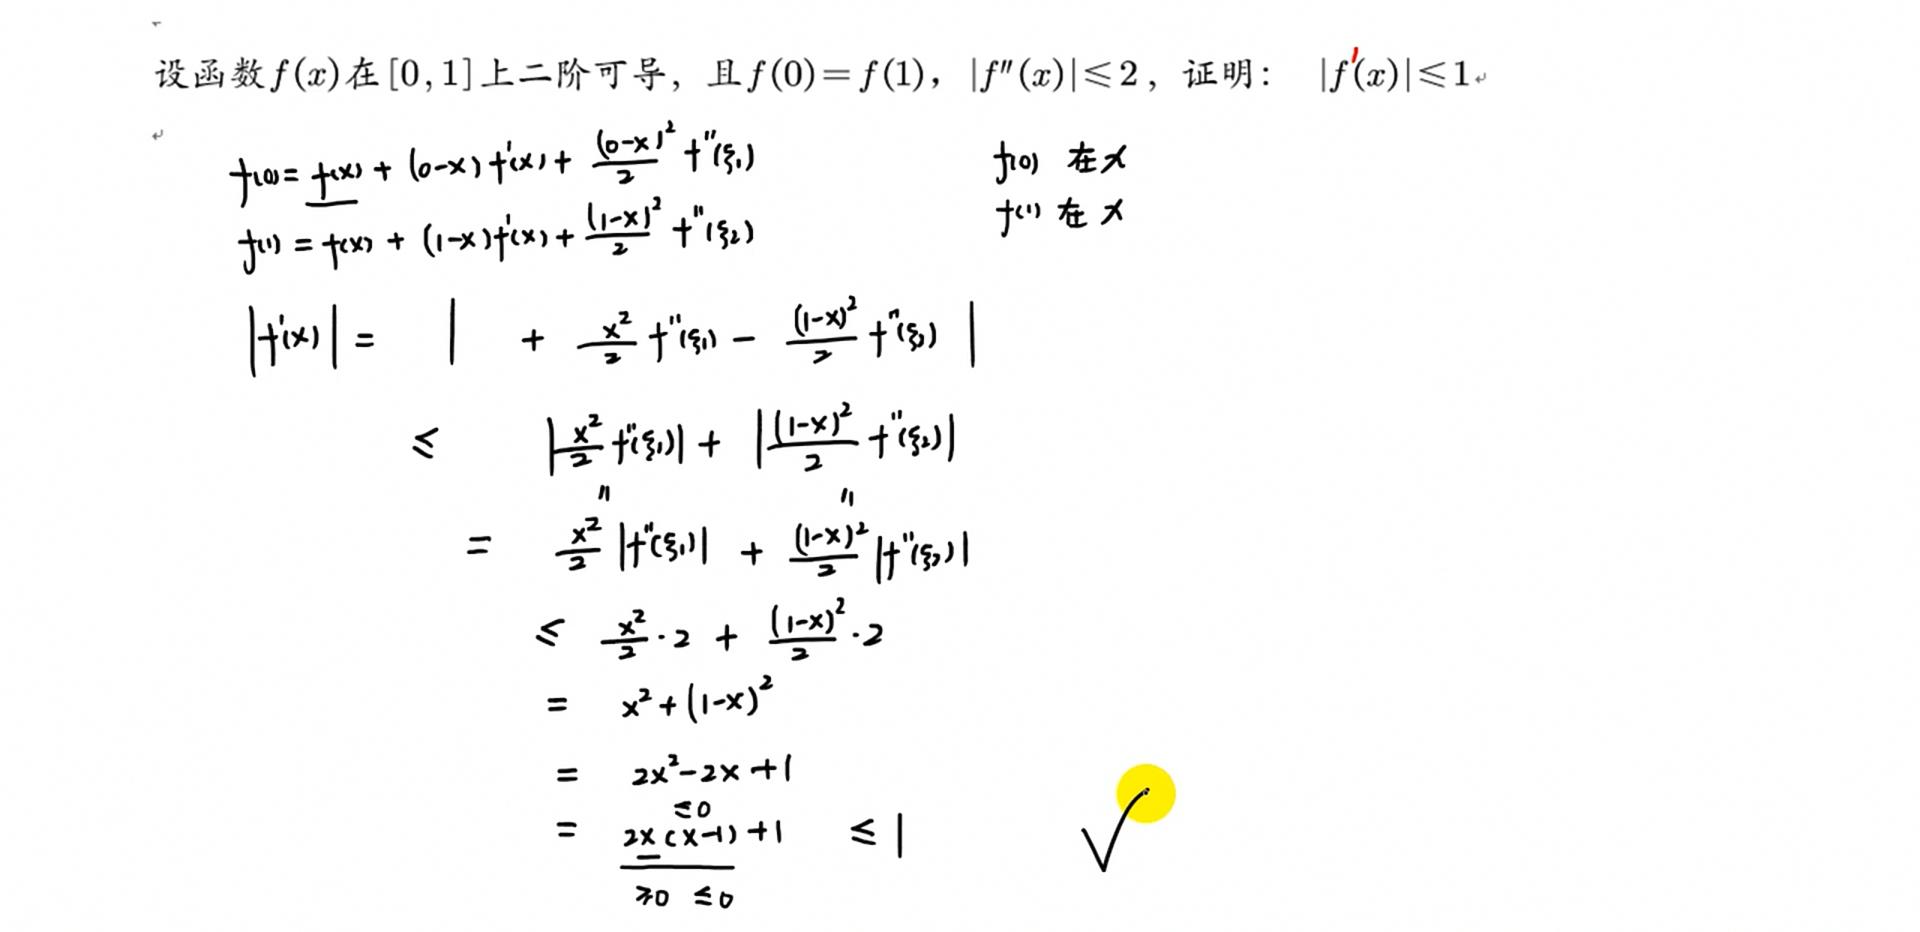 设函数f(x)在[0,1]上二阶可导，且f(0)=f(1)，|f''(x)|≤2，证明： |f'(x)|≤1
f(0)=f(x)+(0-x)f'(x)+\frac{(0-x)^2}{2}f''(ξ₁)
f(0) 在x
f(1)=f(x)+(1-x)f'(x)+\frac{(1-x)^2}{2}f''(ξ₂)
f(1) 在x
|f'(x)|= | + \frac{x^2}{2}f''(ξ₁) - \frac{(1-x)^2}{2}f''(ξ₂) |
≤ |\frac{x^2}{2}f''(ξ₁)| + |\frac{(1-x)^2}{2}f''(ξ₂)|
= \frac{x^2}{2}|f''(ξ₁)| + \frac{(1-x)^2}{2}|f''(ξ₂)|
≤ \frac{x^2}{2}·2 + \frac{(1-x)^2}{2}·2
= x²+(1-x)²
= 2x²-2x+1
≤0
= 2x(x-1)+1 ≤1
≥0 ≤0